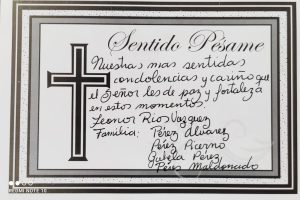 Sentido Pésame
Nuestras mas sentidas
condolencias y cariño que
el Señor les de paz y fortaleza
en estos momentos.
Leonor Rios Vazquez
Familia: Pérez Alvarez
Pérez Pierno
Gubela Pérez
Pérez Maldonado
REDMI NOTE 10